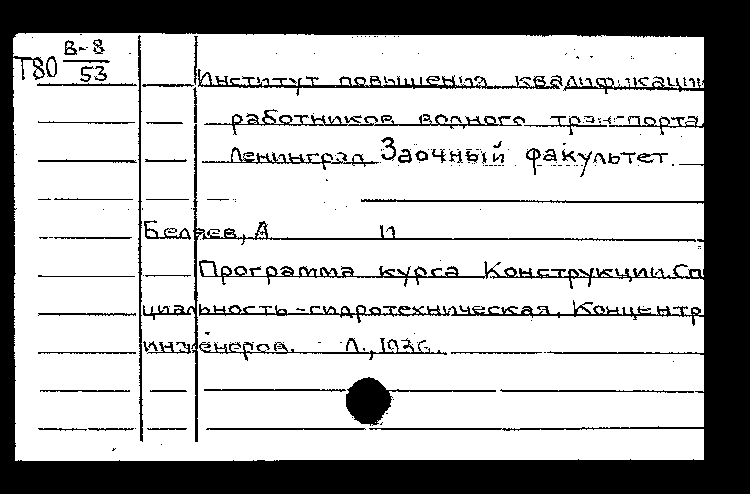 Т80 В-8
53
Институт повышения квалификации
работников водного транспорта.
Ленинград. Заочный факультет.
Беляев, А И
Программа курса Конструкции. Спе
циальность - гидротехническая. Концентр
инженеров. Л., 1936.